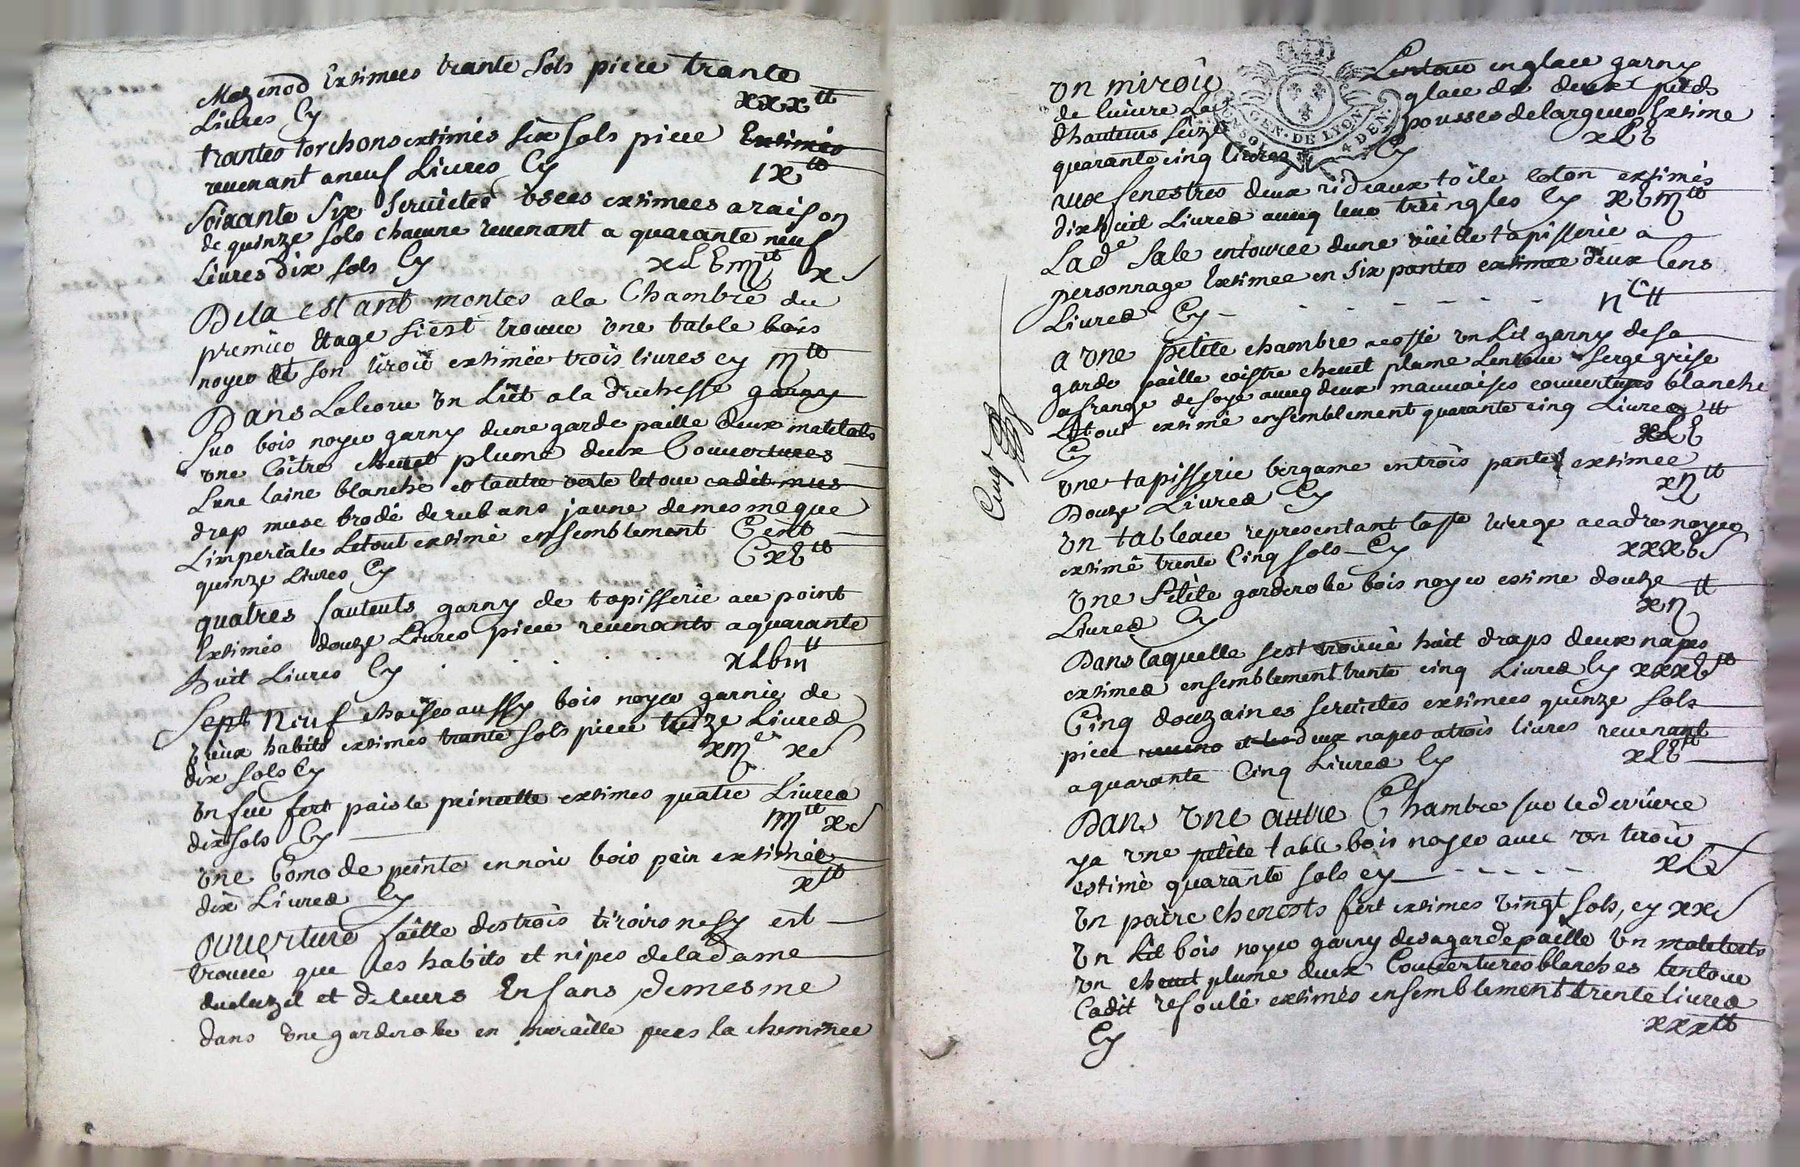 Mazinod Extimees trante sols piece trante
Livres Cy xxx tt
trantes torchons extimés six sols piece Extimés
revenant a neuf Livres Cy ix tt
Soixante six Servietes usees extimees a raison
de quinze sols chacune revenant a quarante neuf
Livres dix sols Cy xLviiii tt x s
De la estant montes a la Chambre du
premier Etage s'iest trouve une table bois
noyer et son tiroir extimée trois livres cy iii tt
Dans Lalcove un Lict a la duchesse garny
sur bois noyer garny dune garde paille deux matelats
une Coitre chevet plume deux Couvertures
Lune laine blanche et lautre verte letour cadit mus
drap musc brodé de rubans jaune de mesme que
Limperiale Letout extimé ensemblement Cent
quinze Livres Cy Cxv tt
quatres fauteuls garny de tapisserie au point
Extimés douze Livres piece revenants a quarante
huit Livres Cy xLviii tt
Sept Neuf chaises aussy bois noyer garnie de
vieux habits extimes trante sols piece treze Livres
dix sols Cy xiii tt x s
un feu fert paiole pincette extimes quatre Livres
dix sols Cy iiii tt x s
une Comode peinte en noir bois peir extimée
dix Livres Cy x tt
ouverture faitte des trois tiroirs nesy est
trouve que les habits et nipes de la dame
ducluzel et de leurs Enfans de mesme
dans une garderobe en muraille pres la cheminee
un miroir Lentour en glace garny
de cuivre La glace de deux pieds
dhauteur seize pousses de largeur Extime
quarante cinq livres Cy xLv
GEN. DE LYON
4 DEN.
aux fenestres deux rideaux toile coton extimés
dixhuit Livres aveq leur treingles Cy xviii tt
La de Sale entouree dune vieille tapisserie a
personnage Extimee en six pantes extimee deux Cens
Livres Cy ii C tt
a une petite chambre acosté un Lit garny de sa
garde paille coistre chevet plume Lentour serge grise
a frange de soye aveq deux mauvaises couvertures blanche
Letout extimé ensemblement quarante cinq Livres
Cy xLv tt
une tapisserie bergame en trois pantes extimee
Douze Livres Cy xii tt
un tableau representant la ste vierge a cadre noyer
extimé trente Cinq sols Cy xxxv s
une Petite garderobe bois noyer estime douze
Livres Cy xii tt
Dans laquelle sest trouvé huit draps deux napes
extimes ensemblement trente cinq Livres Cy xxxv tt
Cinq douzaines serviettes extimees quinze sols
piece et les deux napes a trois livres revenant
a quarante Cinq Livres Cy xLv tt
Dans une auttre Chambre sur le derriere
ya une petite table bois noyer avec un tiroir
estimé quarante sols cy xL s
un paire chenests fert extimes vingt sols, cy xx s
un Lit bois noyer garny de sa garde paille un matelats
un chevet plume deux Couvertures blanches lentour
Cadit resoulé extimés ensemblement trente livres
Cy xxx tt